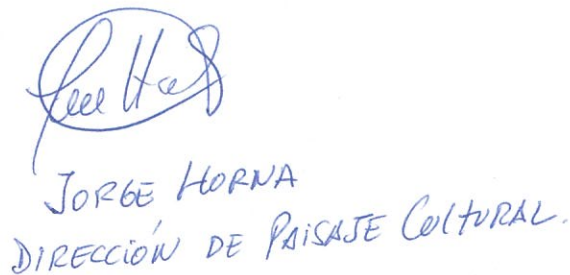 JORGE HORNA
DIRECCIÓN DE PAISAJE CULTURAL.